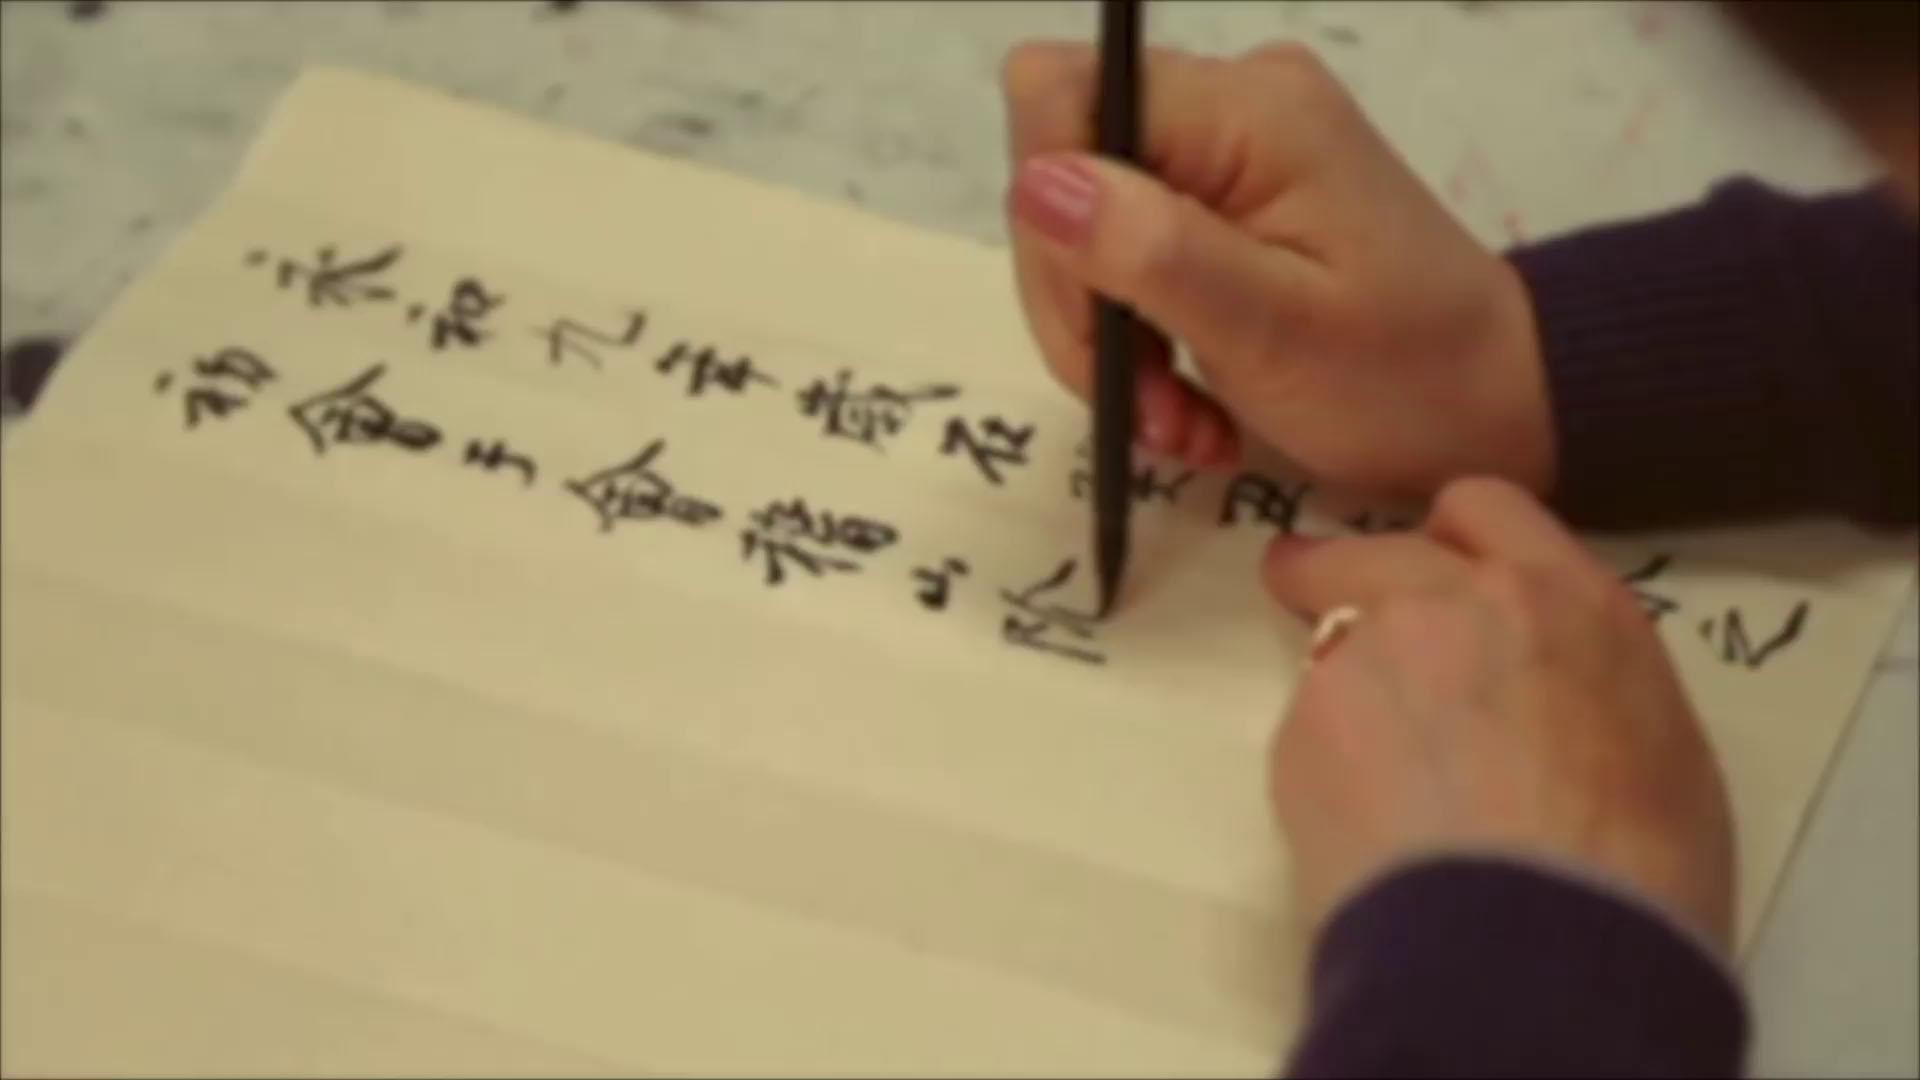 永和九年歲在癸丑之
初會于會稽山陰